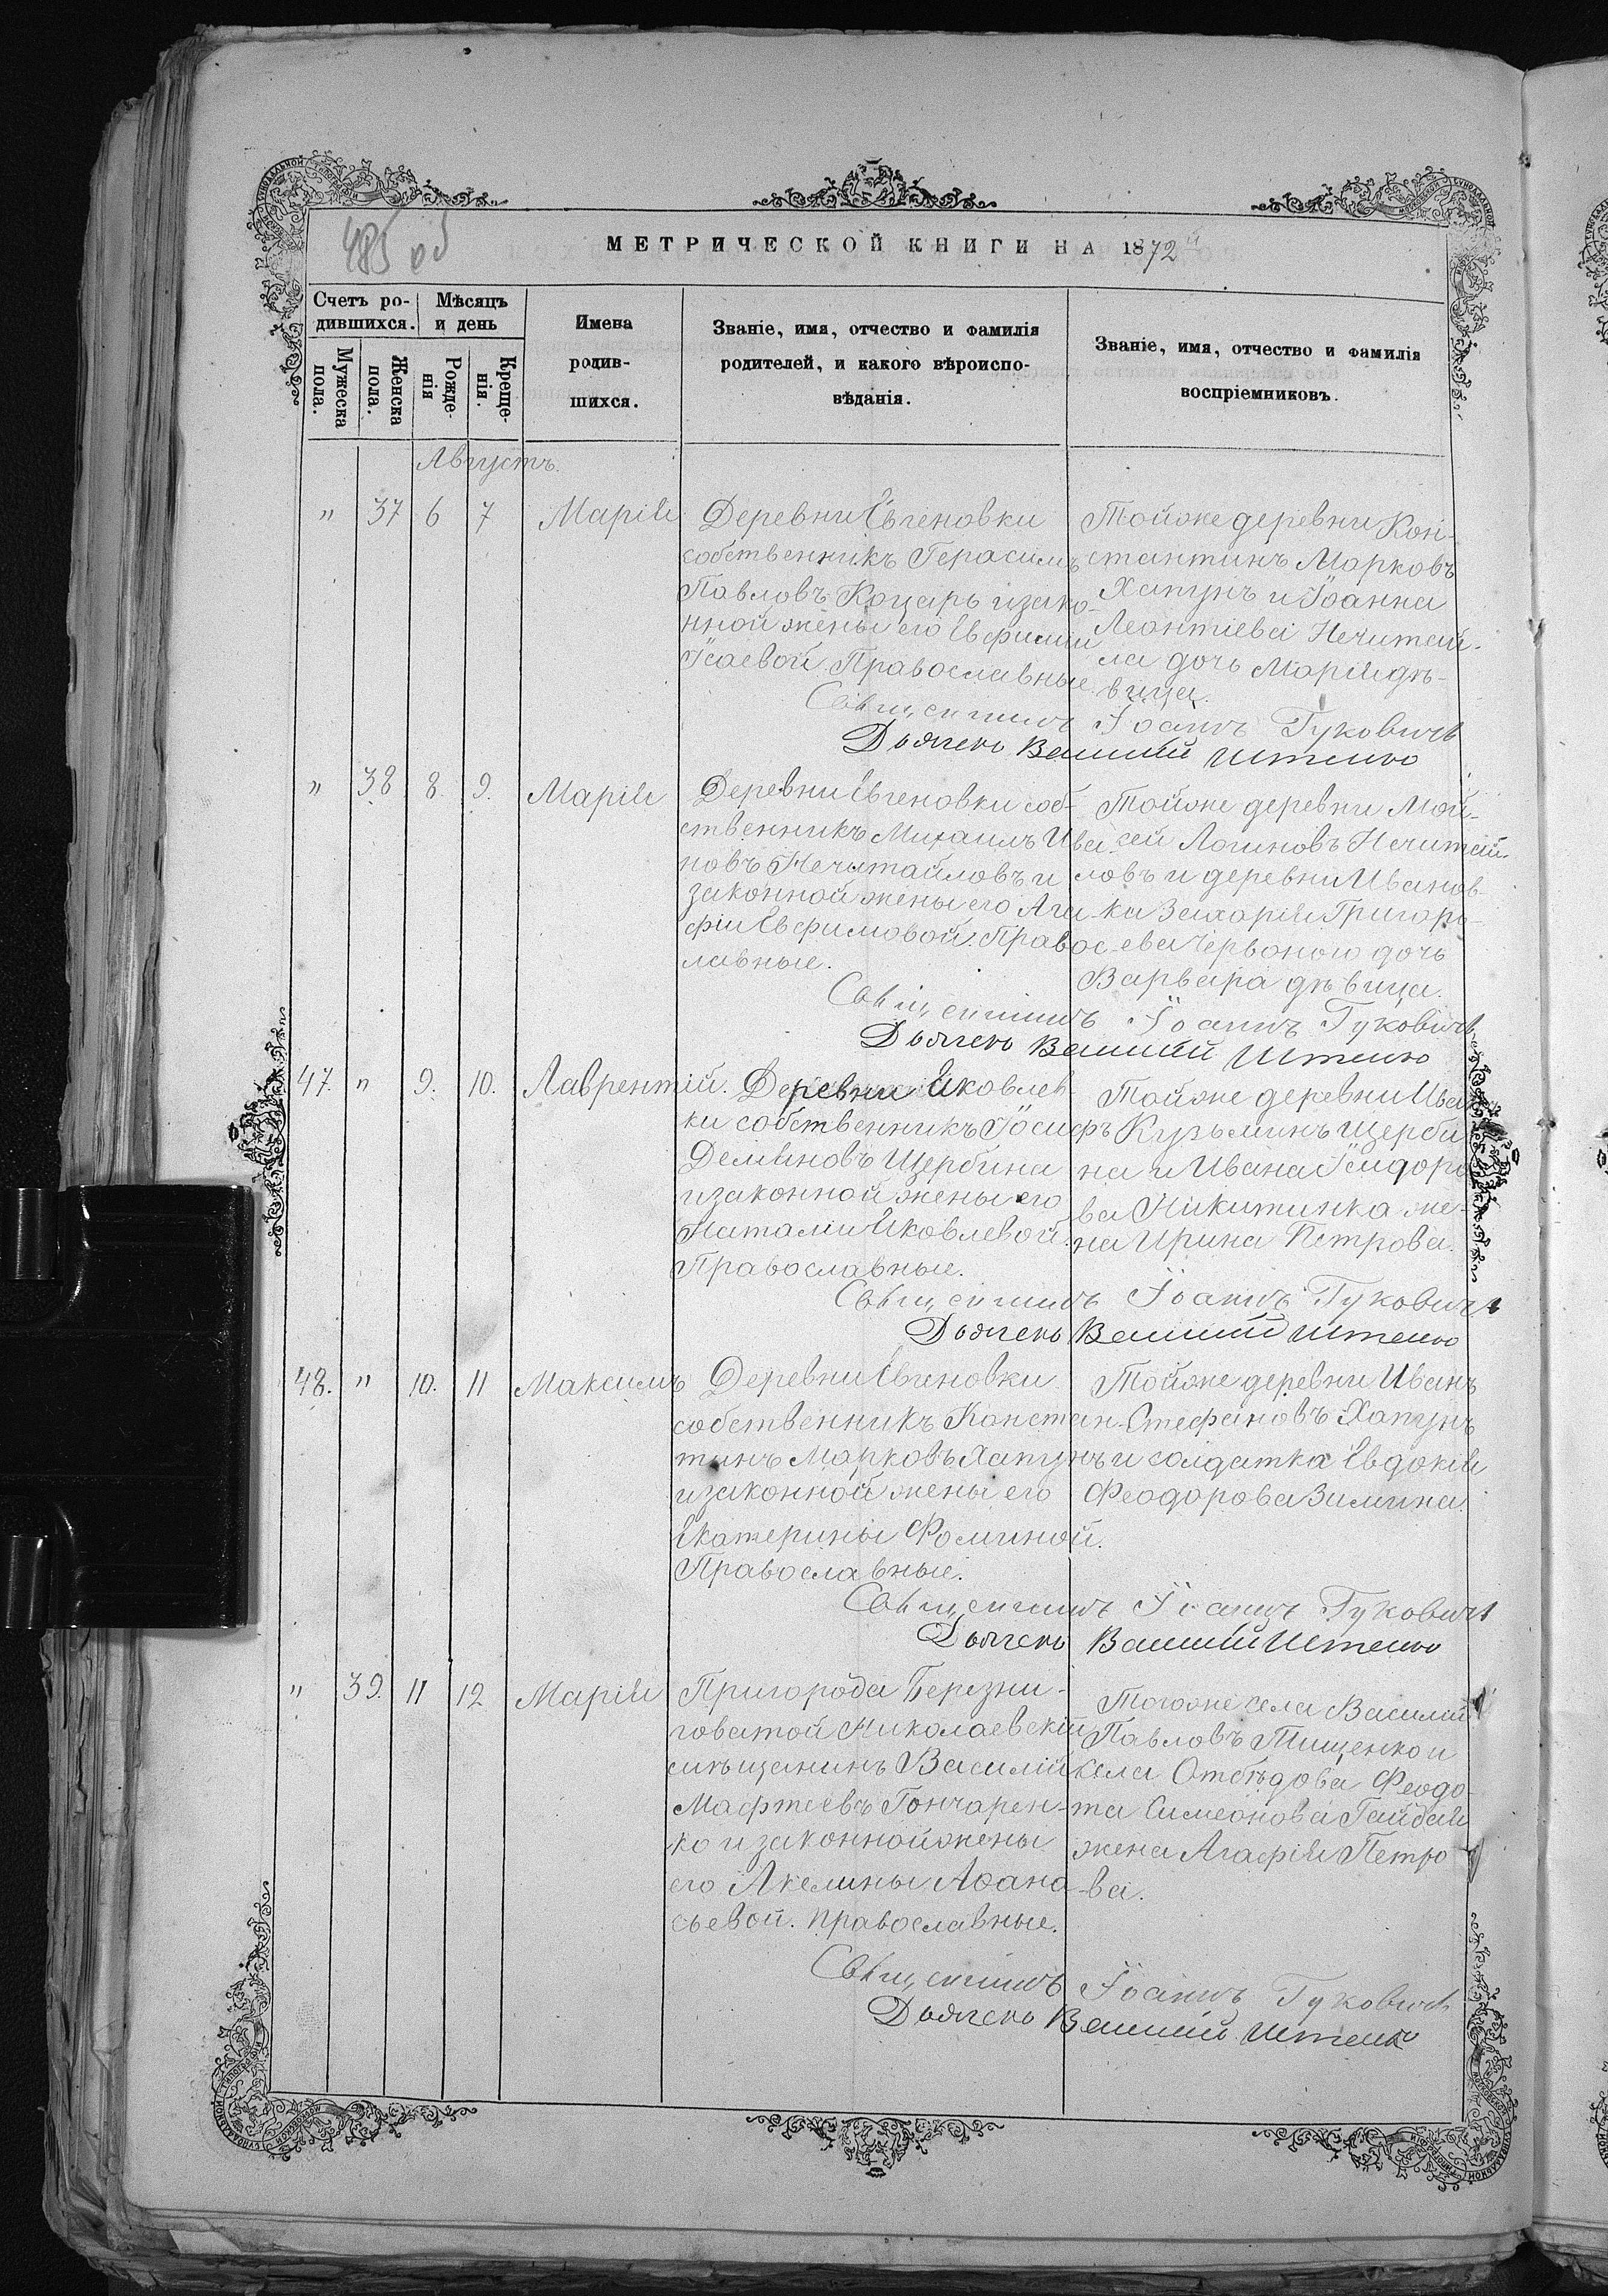 485 об
МЕТРИЧЕСКОЙ КНИГИ НА 1872й
Счетъ ро-
дившихся.
Мѣсяцъ
и день
Мужеска
пола.
Женска
пола.
Рожде-
нія
Креще-
нія.
Имена
родив-
шихся.
Званіе, имя, отчество и фамилія
родителей, и какого вѣроиспо-
вѣданія.
Званіе, имя, отчество и фамилія
воспріемниковъ.
Августъ.
" 37 6 7 Марія
Деревни Евгеновки
собственникъ Герасимъ
Павловъ Коцарь и зако-
нной жены его Евфиміи
Ісаевой. Православные.
Тойже деревни Кон-
стантинъ Марковъ
Хапунъ и Іоанна
Леонтіева Нечитай-
ла дочь Марія дѣ-
вица.
Священникъ Іоаннъ Гуковичъ
Дьячекъ Василій
" 38 8. 9. Марія
Деревни Евгеновки соб-
ственникъ Михаилъ Ива
новъ Нечитайловъ и
законной жены его Ага
фіи Евфимовой. Правос
лавные.
Тойже деревни Мой-
сей Логиновъ Нечитай-
ловъ и деревни Иванов-
ки Захарія Григорь-
ева Червоного дочь
Варвара дѣвица.
Священникъ Іоаннъ Гуковичъ
Дьячекъ Василій
47. " 9. 10. Лаврентій.
Деревни Яковлев-
ки собственникъ Іосифъ
Деміяновъ Щербина
и законной жены его
Наталіи Яковлевой.
Православные.
Тойже деревни Иванъ
Кузьминъ Щерби
на и Ивана Ісидоро
ва Никитинка же-
на Ирина Петрова.
Священникъ Іоаннъ Гуковичъ
Дьячекъ Василій
48. " 10. 11 Максимъ
Деревни Евгеновки
собственникъ Констан-
тинъ Марковъ Хапунъ
и законной жены его
Екатерины Фоминой.
Православные.
Тойже деревни Иванъ
Стефановъ Хапунъ
и солдатка Евдокія
Феодорова Зимина.
Священникъ Іоаннъ Гуковичъ
Дьячекъ Василій
" 39. 11 12 Марія
Пригорода Березни-
говатой Николаевскій
мѣщанинъ Василій
Мафтеевъ Гончарен-
ко и законной жены
его Акелины Аѳана
сьевой. православные.
Тогоже села Василій
Павловъ Тищенко и
села Отбѣдова Феодо-
та Симеонова Гайдай
жена Агафія Петро
ва.
Священникъ Іоаннъ Гуковичъ
Дьячекъ Василій